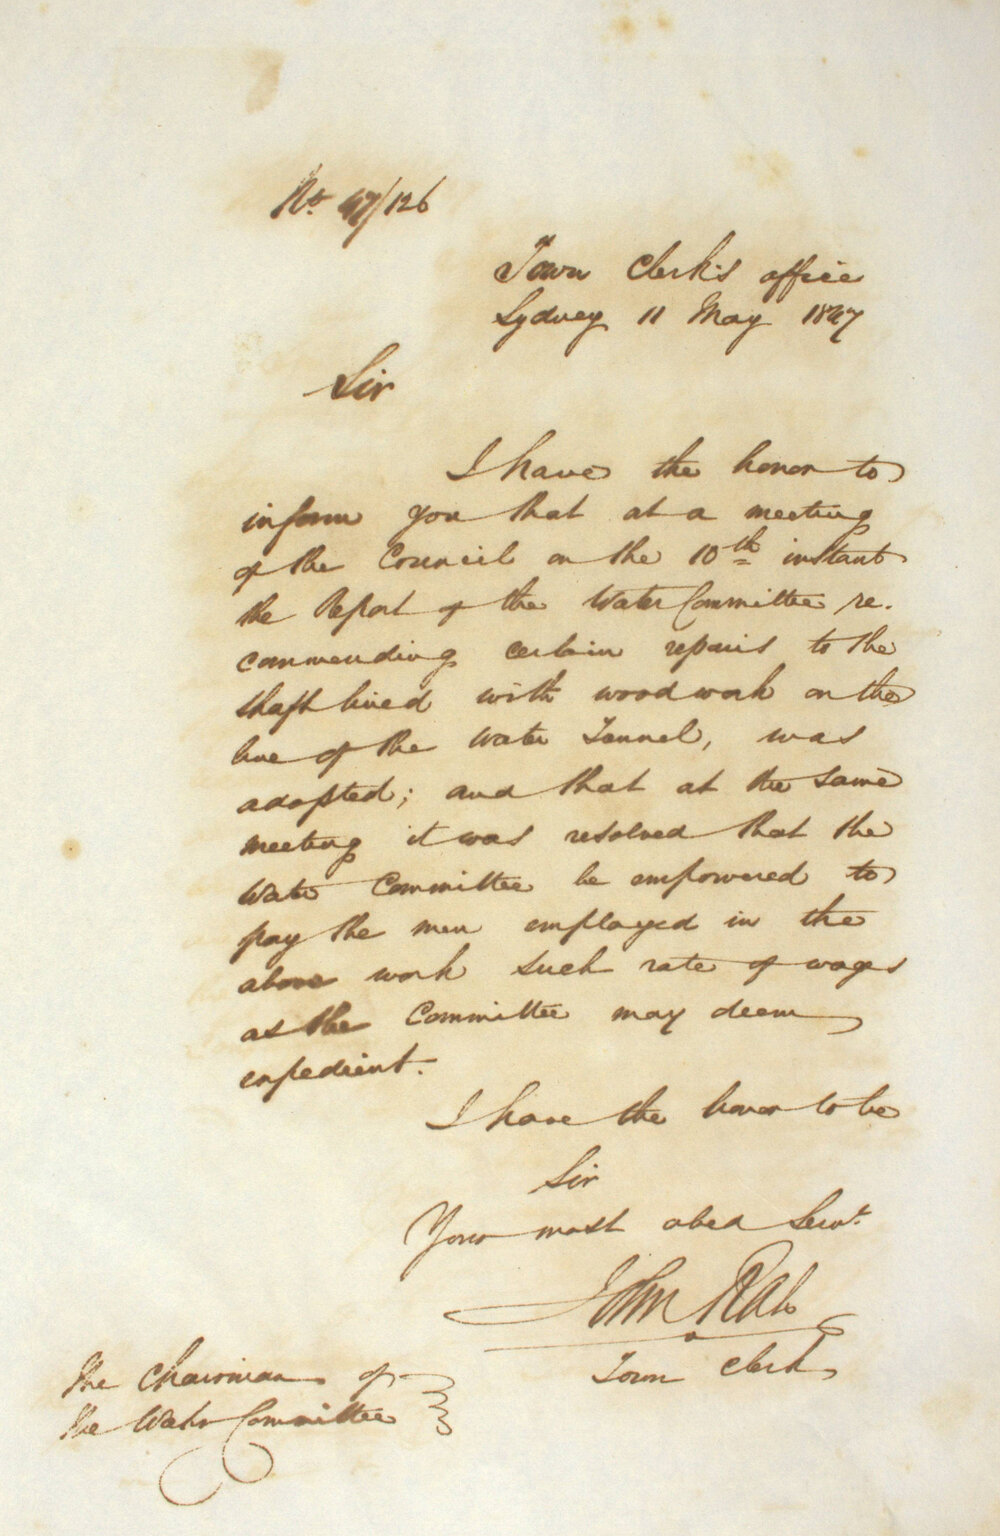 No. 47/126
Town Clerk's office
Sydney 11 May 1847
Sir
I have the honor to
inform you that at a meeting
of the Council on the 10th instant
the Report of the Water Committee re-
commending certain repairs to the
shaft lined with woodwork on the
line of the Water Tunnel, was
adopted; and that at the same
meeting it was resolved that the
Water Committee be empowered to
pay the men employed in the
above work such rate of wages
as the Committee may deem
expedient.
I have the honor to be
Sir
Your most obed Servt.
John Rae
Town Clerk
The Chairman of
the Water Committee